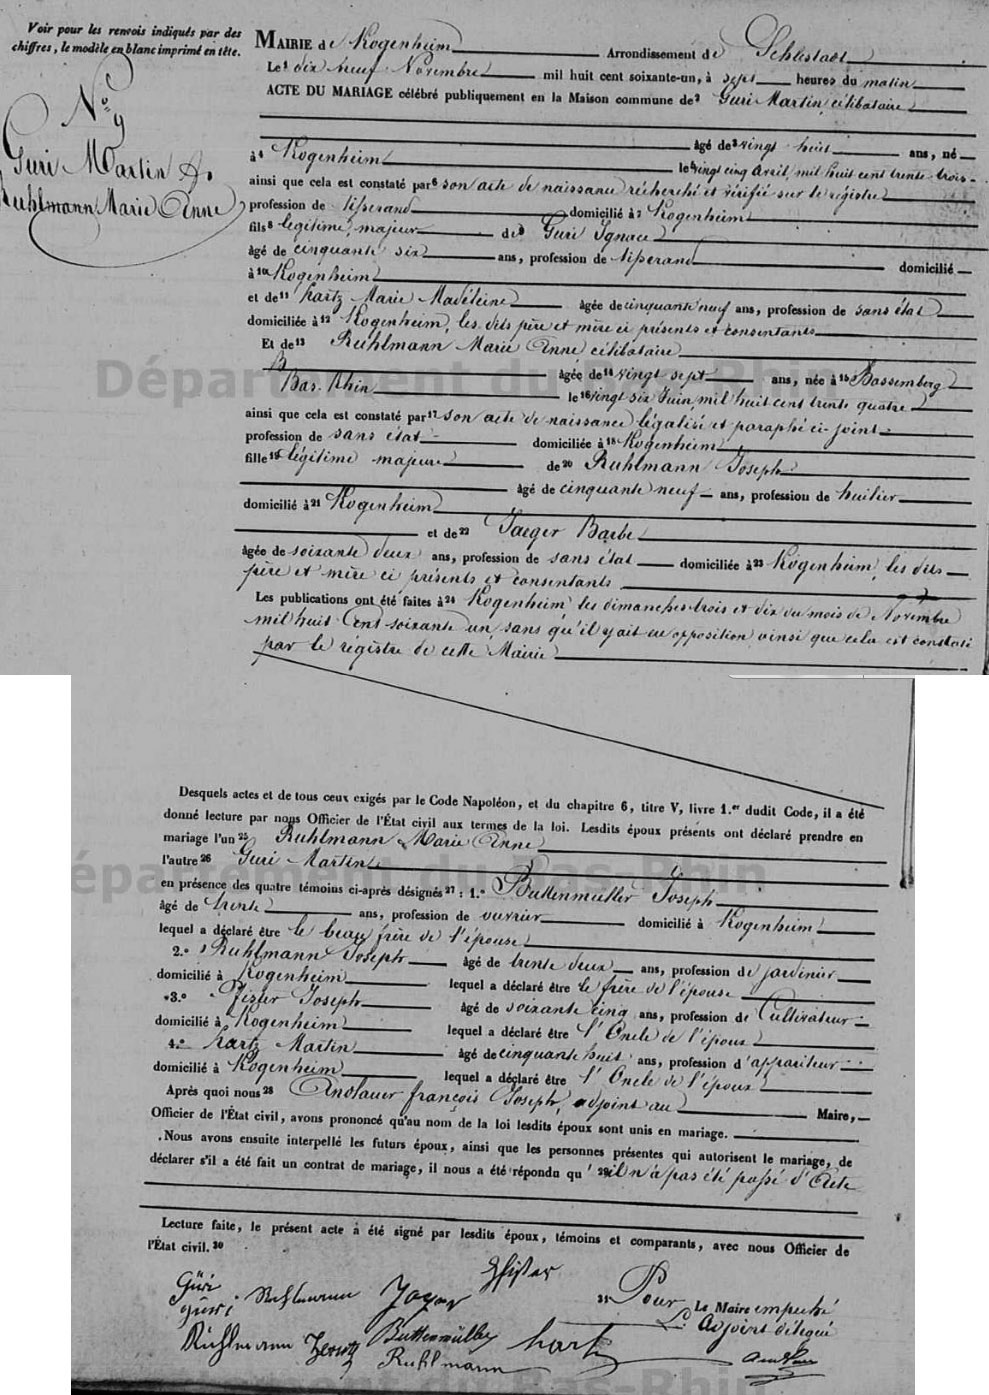 Voir pour les renvois indiqués par des
chiffres, le modèle en blanc imprimé en tête.
N.º 9
Guri Martin &
Ruhlmann Marie Anne
MAIRIE de Kogenheim Arrondissement de Schlestadt
Le¹ dix neuf Novembre mil huit cent soixante-un, à sept heures du matin
ACTE DU MARIAGE célébré publiquement en la Maison commune de² Guri Martin, célibataire
âgé de³ vingt huit ans, né
à⁴ Kogenheim le⁵ vingt cinq Avril, mil huit cent trente trois
ainsi que cela est constaté par⁶ son acte de naissance recherché et vérifié sur le régistre
profession de tisserand domicilié à⁷ Kogenheim
fils⁸ légitime, majeur de⁹ Guri Ignace
âgé de cinquante six ans, profession de tisserand domicilié
à¹⁰ Kogenheim
et de¹¹ hartz Marie Madeleine âgée de cinquante neuf ans, profession de sans état
domiciliée à¹² Kogenheim, les dits père et mère ci présents et consentants
Et de¹³ Ruhlmann Marie Anne célibataire
âgée de¹⁴ vingt sept ans, née à¹⁵ Bassemberg
Bas-Rhin le¹⁶ vingt six Juin, mil huit cent trente quatre
ainsi que cela est constaté par¹⁷ son acte de naissance légalisé et paraphé ci-joint
profession de sans état domiciliée à¹⁸ Kogenheim
fille¹⁹ légitime majeure de²⁰ Ruhlmann Joseph
âgé de cinquante neuf ans, profession de huilier
domicilié à²¹ Kogenheim
et de²² Jaeger Barbe
âgée de soixante deux ans, profession de sans état domiciliée à²³ Kogenheim, les dits
père et mère ci présents et consentants
Les publications ont été faites à²⁴ Kogenheim les dimanches trois et dix du mois de Novembre
mil huit Cent soixante un, sans qu'il y ait eu opposition ainsi que cela est constaté
par le régistre de cette Mairie
Desquels actes et de tous ceux exigés par le Code Napoléon, et du chapitre 6, titre V, livre 1.er dudit Code, il a été
donné lecture par nous Officier de l'État civil aux termes de la loi. Lesdits époux présents ont déclaré prendre en
mariage l'un²⁵ Ruhlmann Marie Anne
l'autre²⁶ Guri Martin
en présence des quatre témoins ci-après désignés²⁷ : 1.º Buttenmüller Joseph
âgé de trente ans, profession de ouvrier domicilié à Kogenheim
lequel a déclaré être le beau frère de l'épouse
2.º Ruhlmann Joseph âgé de trente deux ans, profession de jardinier
domicilié à Kogenheim lequel a déclaré être le frère de l'épouse
3.º Joseph âgé de soixante cinq ans, profession de Cultivateur
domicilié à Kogenheim lequel a déclaré être l'Oncle de l'époux
4.º hartz Martin âgé de cinquante huit ans, profession d'appariteur
domicilié à Kogenheim lequel a déclaré être l'Oncle de l'époux
Après quoi nous²⁸ Andlauer françois Joseph, adjoint au Maire,
Officier de l'État civil, avons prononcé qu'au nom de la loi lesdits époux sont unis en mariage.
Nous avons ensuite interpellé les futurs époux, ainsi que les personnes présentes qui autorisent le mariage, de
déclarer s'il a été fait un contrat de mariage, il nous a été répondu qu'²⁹ il n'a pas été passé d'Acte
Lecture faite, le présent acte a été signé par lesdits époux, témoins et comparants, avec nous Officier de
l'État civil.³⁰
Güri Ruhlmann
Güri
31 Pour Le Maire empêché
L'Adjoint délégué
Ruhlmann Buttenmüller hartz
Ruhlmann
Département du Bas-Rhin
Département du Bas-Rhin
Département du Bas-Rhin